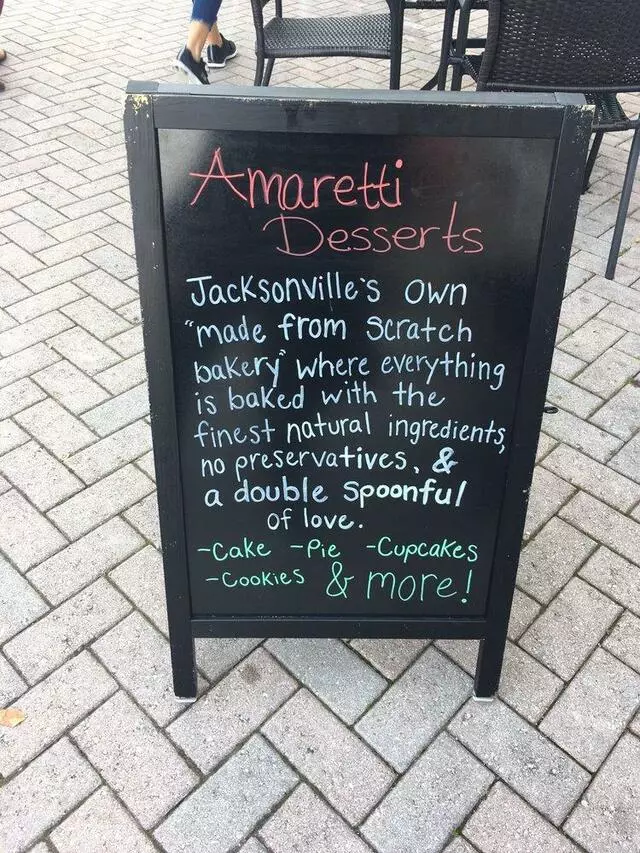 Amaretti
Desserts
Jacksonville's own
"made from scratch
bakery" where everything
is baked with the
finest natural ingredients,
no preservatives, &
a double spoonful
of love.
-Cake -Pie -Cupcakes
-Cookies & more!